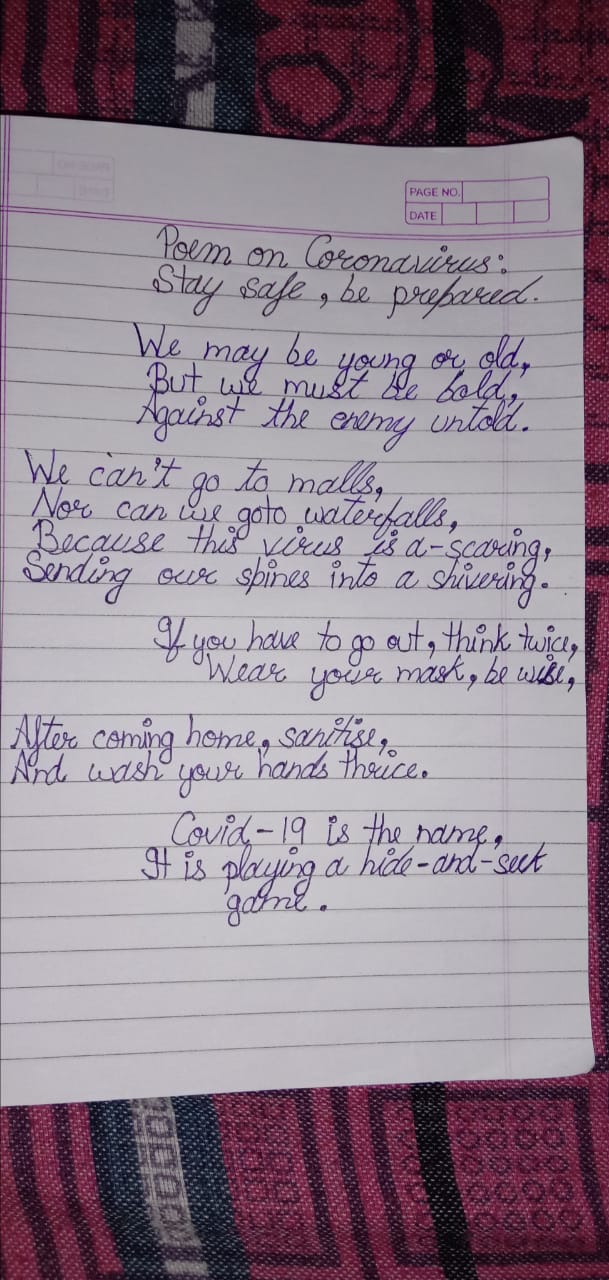 PAGE NO.
DATE
Poem on Coronavirus:
Stay safe, be prepared.
We may be young or old,
But we must be bold,
Against the enemy untold.
We can't go to malls,
Nor can we goto waterfalls,
Because this virus is a-scaring,
Sending our spines into a shivering.
If you have to go out, think twice,
Wear your mask, be wise,
After coming home, sanitise,
And wash your hands thrice.
Covid-19 is the name,
It is playing a hide-and-seek
game.